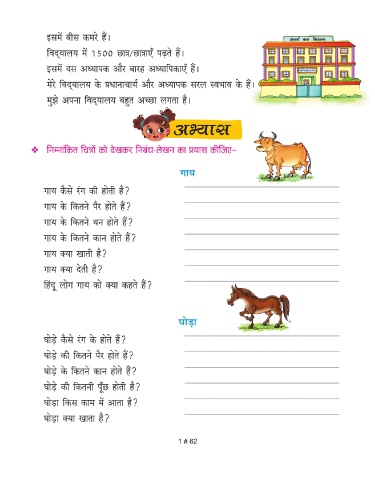 इसमें बीस कमरे हैं।
विद्यालय में 1500 छात्र/छात्राएँ पढ़ते हैं।
इसमें दस अध्यापक और बारह अध्यापिकाएँ हैं।
मेरे विद्यालय के प्रधानाचार्य और अध्यापक सरल स्वभाव के हैं।
मुझे अपना विद्यालय बहुत अच्छा लगता है।
अभ्यास
❖ निम्नांकित चित्रों को देखकर निबंध-लेखन का प्रयास कीजिए-
गाय
गाय कैसे रंग की होती है?
गाय के कितने पैर होते हैं?
गाय के कितने थन होते हैं?
गाय के कितने कान होते हैं?
गाय क्या खाती है?
गाय क्या देती है?
हिंदू लोग गाय को क्या कहते हैं?
घोड़ा
घोड़े कैसे रंग के होते हैं?
घोड़े की कितने पैर होते हैं?
घोड़े के कितने कान होते हैं?
घोड़े की कितनी पूँछ होती है?
घोड़ा किस काम में आता है?
घोड़ा क्या खाता है?
1 # 62